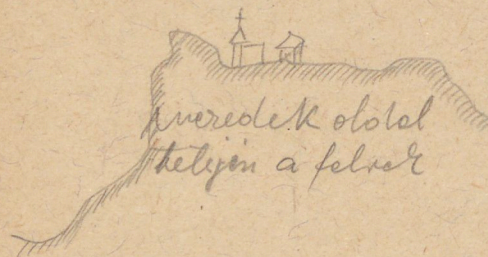 meredek oldal
helyén a felvek